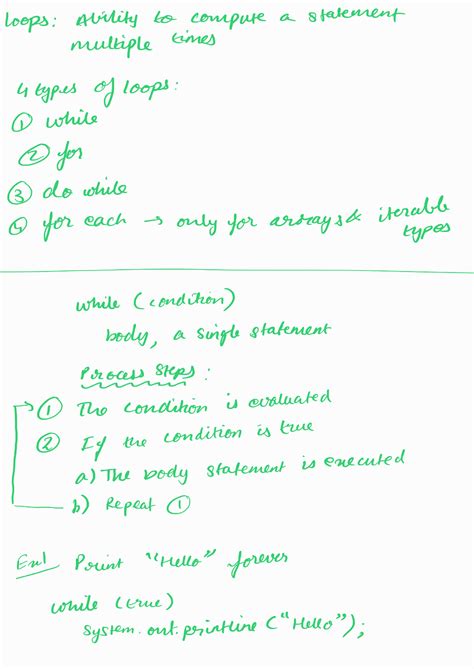 Loops: Ability to compute a statement
multiple times
4 types of loops:
① while
② for
③ do while
④ for each → only for arrays & iterable
types
while (condition)
body, a single statement
Process Steps:
① The condition is evaluated
② If the condition is true
a) The body statement is executed
b) Repeat ①
Ex1 Print "Hello" forever
while (true)
System.out.printline ("Hello");